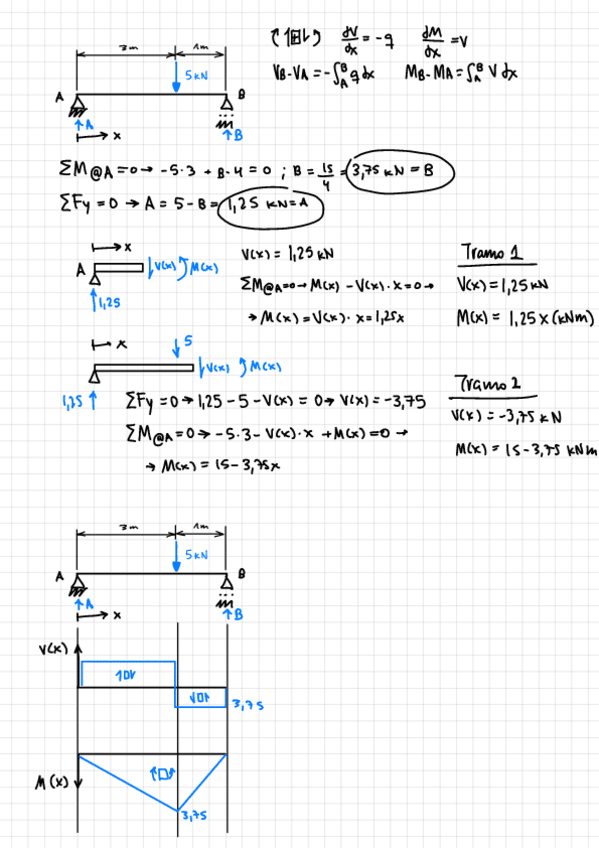 3m 1m
5kN
A B
↑A ↑B
x
dV/dx = -q dM/dx = V
VB-VA = -∫_A^B q dx MB-MA = ∫_A^B V dx
ΣM@A=0 → -5·3 + B·4 = 0 ; B = 15/4 = 3,75 kN = B
ΣFy=0 → A = 5-B = 1,25 kN = A
x
A V(x) M(x)
1,25
V(x) = 1,25 kN
ΣM@A=0 → M(x) - V(x)·x=0 →
→ M(x) = V(x)·x = 1,25x
Tramo 1
V(x) = 1,25 kN
M(x) = 1,25x (kNm)
x 5
V(x) M(x)
1,25
ΣFy=0 → 1,25 - 5 - V(x) = 0 → V(x) = -3,75
ΣM@A=0 → -5·3 - V(x)·x + M(x)=0 →
→ M(x) = 15-3,75x
Tramo 2
V(x) = -3,75 kN
M(x) = 15-3,75 kNm
3m 1m
5kN
A B
↑A ↑B
x
V(x)
3,75
M(x)
3,75